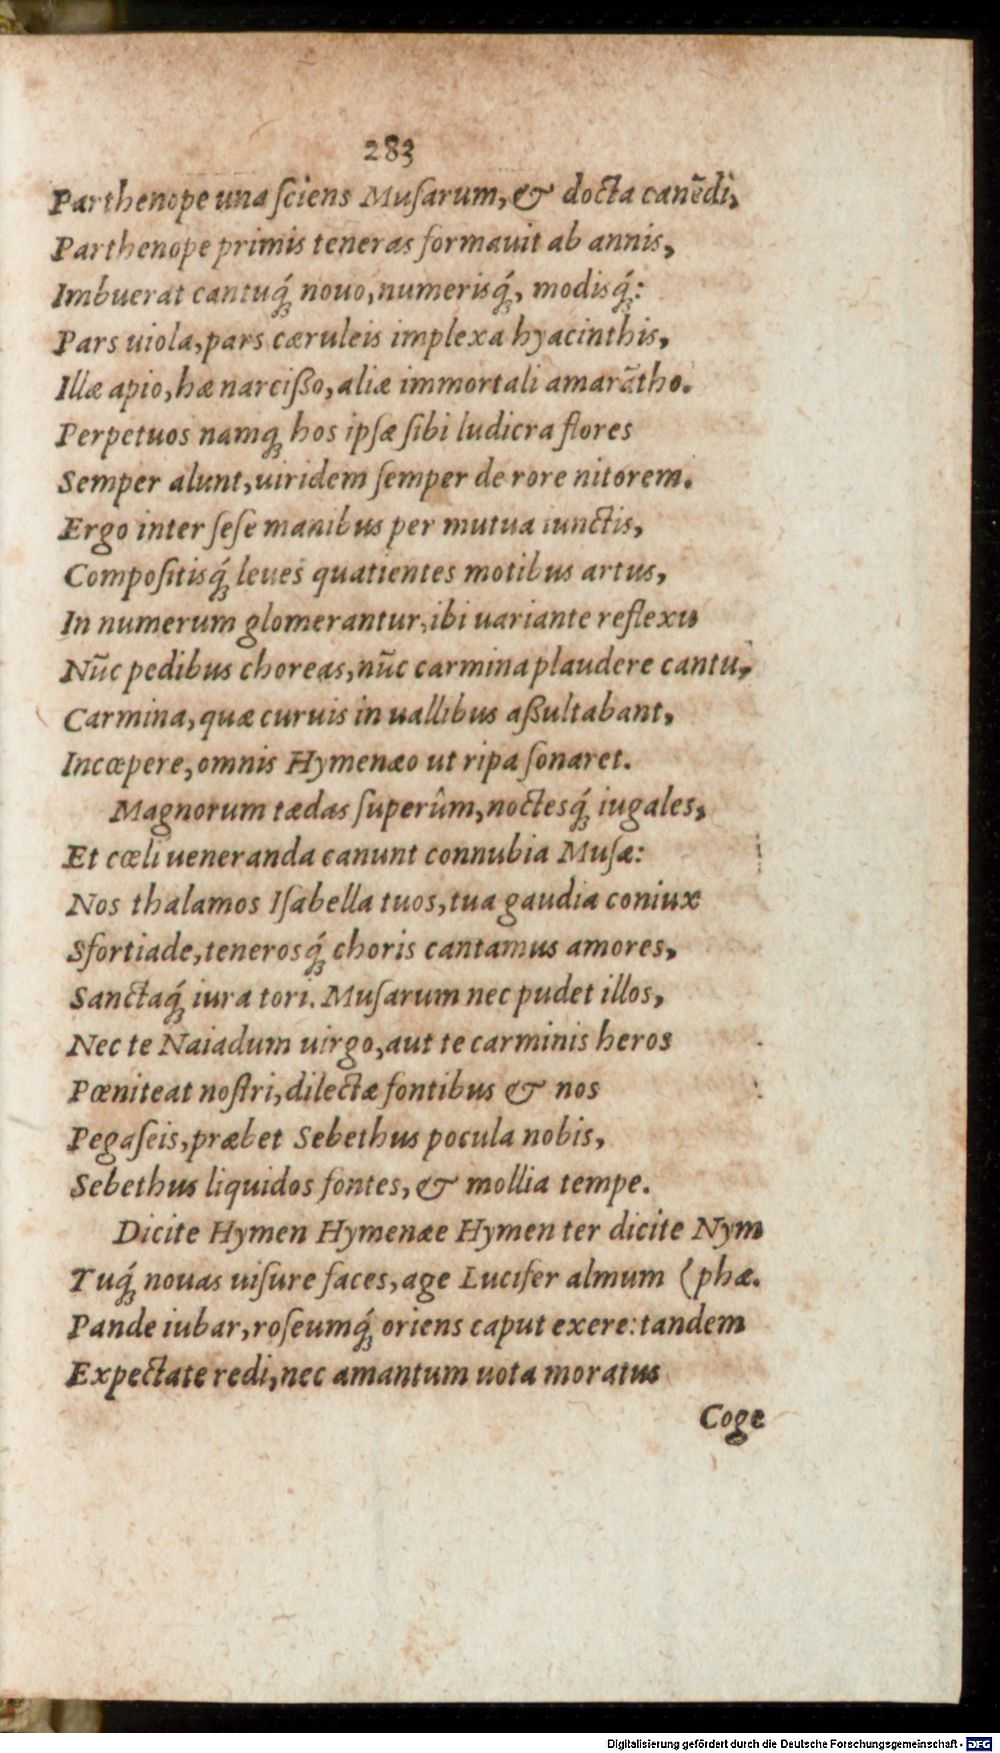 283
Parthenope una ſciens Muſarum, & docta canēdi,
Parthenope primis teneras formauit ab annis,
Imbuerat cantuq́; nouo, numerisq́;, modisq́;:
Pars uiola, pars cæruleis implexa hyacinthis,
Illæ apio, hæ narciſſo, aliæ immortali amarātho.
Perpetuos namq; hos ipſæ ſibi ludicra flores
Semper alunt, uiridem ſemper de rore nitorem.
Ergo inter ſeſe manibus per mutua iunctis,
Compoſitisq́; leues quatientes motibus artus,
In numerum glomerantur, ibi uariante reflexu
Nūc pedibus choreas, nūc carmina plaudere cantu,
Carmina, quæ curuis in uallibus aſſultabant,
Incœpere, omnis Hymenæo ut ripa ſonaret.
Magnorum tædas ſuperûm, noctesq́; iugales,
Et cœli ueneranda canunt connubia Muſæ:
Nos thalamos Iſabella tuos, tua gaudia coniux
Sfortiade, tenerosq́; choris cantamus amores,
Sanctaq́; iura tori. Muſarum nec pudet illos,
Nec te Naiadum uirgo, aut te carminis heros
Pœniteat noſtri, dilectæ fontibus & nos
Pegaſeis, præbet Sebethus pocula nobis,
Sebethus liquidos fontes, & mollia tempe.
Dicite Hymen Hymenæe Hymen ter dicite Nym
Tuq́; nouas uiſure faces, age Lucifer almum (phæ.
Pande iubar, roſeumq́; oriens caput exere: tandem
Expectate redi, nec amantum uota moratus
Coge
Digitalisierung gefördert durch die Deutsche Forschungsgemeinschaft - DFG